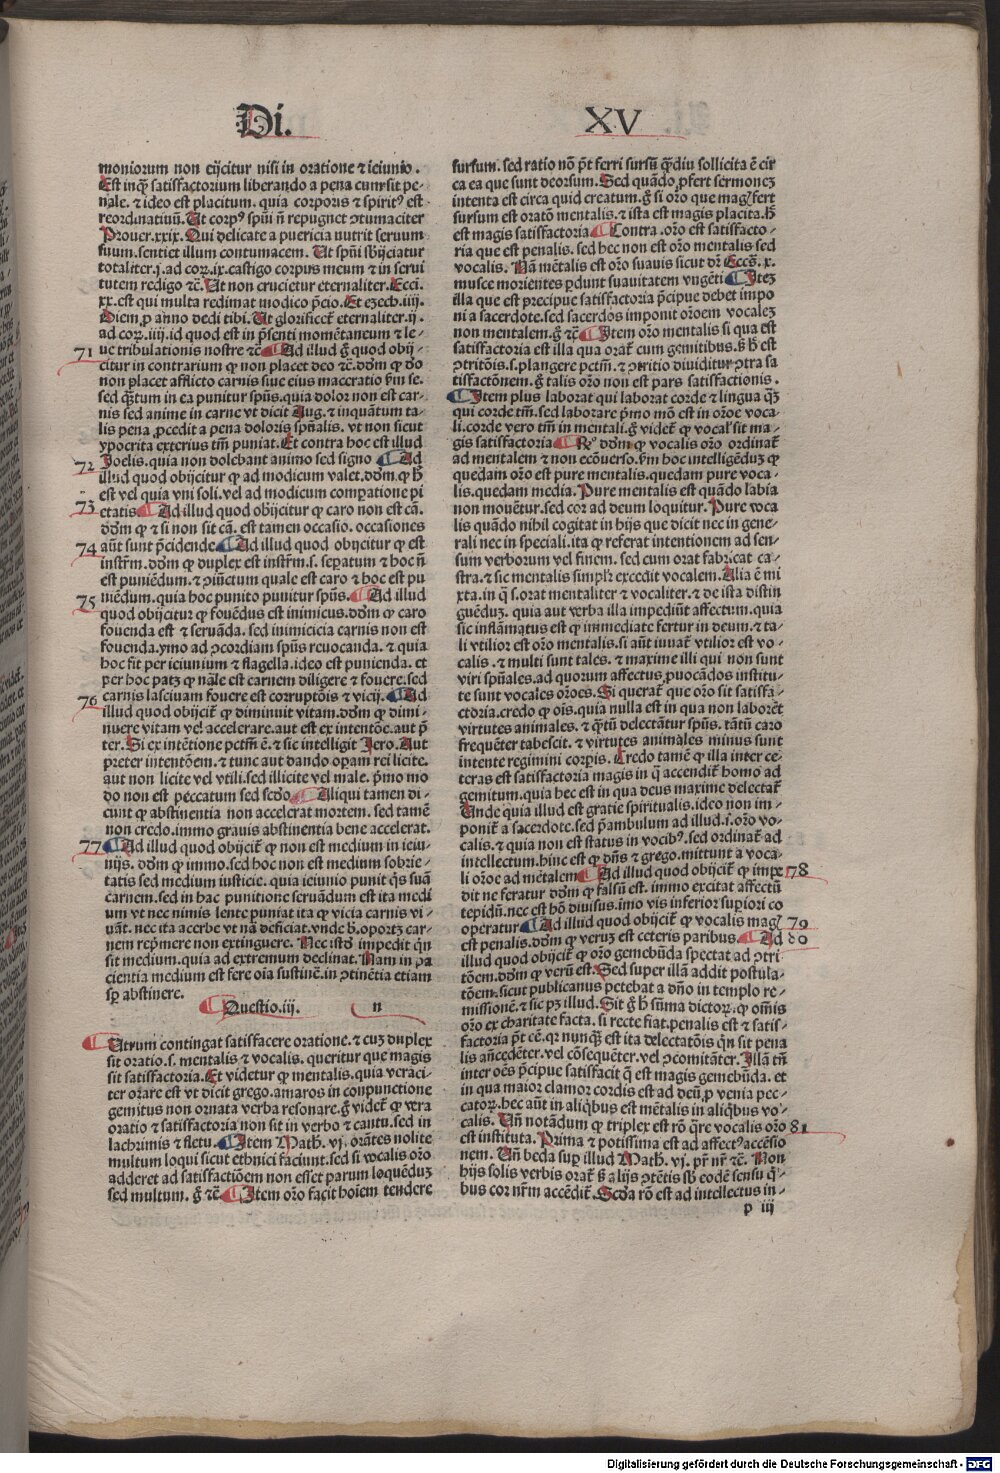 Di. XV
moniorum non eijcitur nisi in oratione ⁊ ieiunio.
Est inqͣ satisfactorium liberando a pena cum sit pe-
nale. ⁊ ideo est placitum. quia corporis ⁊ spirit⁹ est
reordinatiuū. Ut corp⁹ spūi nō repugnet ꝯtumaciter
Prouer.xxix. Qui delicate a puericia nutrit seruum
suum. sentiet illum contumacem. Ut spūi sbijciatur
totaliter.j. ad coꝝ.ix. castigo corpus meum ⁊ in serui
tutem redigo ⁊c̄. Ut non crucietur eternaliter. Ecci.
xx. est qui multa redimat modico p̄cio. Et ezech. iiij.
Diem ꝓ anno dedi tibi. Ut glorificet̄ eternaliter. ij.
ad coꝝ. iiij. id quod est in p̄senti momētaneum ⁊ le-
71 ue tribulationis nostre ⁊c̄ ¶ Ad illud ḡ quod obij-
citur in contrarium ꝙ non placet deo ⁊c̄. dd̄m ꝙ do
non placet afflicto carnis siue eius maceratio ẜm se.
sed qͣʒtum in ea punitur spūs. quia dolor non est car-
nis sed anime in carne vt dicit Aug. ⁊ inquātum ta-
lis pena ꝓcedit a pena doloris spūalis. vt non sicut
ypocrita exterius tm̄ puniat. Et contra hoc est illud
72 Joelis. quia non dolebant animo sed signo ¶ Ad
illud quod obijcitur ꝙ ad modicum valet. dd̄m. ꝙ h̄
est vel quia vni soli. vel ad modicum compatione pi
73 etatis ¶ Ad illud quod obijcitur ꝙ caro non est cā.
dd̄m ꝙ ⁊ si non sit cā. est tamen occasio. occasiones
74 aūt sunt p̄cidende ¶ Ad illud quod obijcitur ꝙ est
instr̄m. dd̄m ꝙ duplex est instr̄m. s. sepatum ⁊ hoc n̄
est puniēdum. ⁊ ꝯiūctum quale est caro ⁊ hoc est pu
75 niēdum. quia hoc punito punitur spūs. ¶ Ad illud
quod obijcitur ꝙ fouēdus est inimicus. dd̄m ꝙ caro
fouenda est ⁊ seruāda. sed inimicicia carnis non est
fouenda. ymo ad ꝯcordiam spūs reuocanda. ⁊ quia
hoc fit per ieiunium ⁊ flagella. ideo est punienda. et
per hoc patꝫ ꝙ nāle est carnem diligere ⁊ fouere. sed
76 carnis lasciuam fouere est corruptōis ⁊ vicij. ¶ Ad
illud quod obijcit̄ ꝙ diminuit vitam. dd̄m ꝙ dimi-
nuere vitam vel accelerare. aut est ex intentōe. aut p̄
ter. Si ex intētione petm̄ ē. ⁊ sic intelligit Jero. Aut
preter intentōem. ⁊ tunc aut dando opam rei licite.
aut non licite vel vtili. sed illicite vel male. p̄mo mo
do non est peccatum sed scd̄o ¶ Aliqui tamen di-
cunt ꝙ abstinentia non accelerat mortem. sed tamē
non credo. immo grauis abstinentia bene accelerat.
77 ¶ Ad illud quod obijcit̄ ꝙ non est medium in ieiu-
nijs. dd̄m ꝙ immo. sed hoc non est medium sobrie-
tatis sed medium iusticie. quia ieiunio punit qͥs suā
carnem. sed in hac punitione seruandum est ita medi
um vt nec nimis lente puniat ita ꝙ vicia carnis vi-
uāt. nec ita acerbe vt nā deficiat. vnde b̄. oportꝫ car-
nem rep̄mere non extinguere. Nec istd̄ impedit qͥn
sit medium. quia ad extremum declinat. Nam in pa
cientia medium est fere oīa sustinē. in ꝯtinētia etiam
sꝑ abstinere.
¶ Questio. iij. n
¶ Utrum contingat satisfacere oratione. ⁊ cuꝫ duplex
sit oratio. s. mentalis ⁊ vocalis. queritur que magis
sit satisfactoria. Et videtur ꝙ mentalis. quia veraci-
ter orare est vt dicit grego. amaros in conpunctione
gemitus non ornata verba resonare. ḡ videt̄ ꝙ vera
oratio ⁊ satisfactoria non sit in verbo ⁊ cantu. sed in
lachrimis ⁊ fletu. ¶ Item Math. vj. orātes nolite
multum loqui sicut ethnici faciunt. sed si vocalis oro
adderet ad satisfactiōem non esset parum loquēduꝫ
sed multum. ḡ ⁊c̄. ¶ Item oro facit hoiem tendere
sursum. sed ratio nō pōt ferri sursū qͣʒdiu sollicita ē cir
ca ea que sunt deorsum. Sed quādo ꝓfert sermonēꝫ
intenta est circa quid creatum. ḡ si oro que mag⁹ fert
sursum est oratō mentalis. ⁊ ista est magis placita. h̄
est magis satisfactoria ¶ Contra. oro. est satisfacto-
ria que est penalis. sed hec non est oro mentalis sed
vocalis. Nā mētalis est oro suauis sicut dr̄ Eccs̄. x.
musce morientes ꝑdunt suauitatem vngēti ¶ Itēꝫ
illa que est precipue satisfactoria p̄cipue debet impo
ni a sacerdote. sed sacerdos imponit oroem vocaleꝫ
non mentalem. ḡ ⁊c̄ ¶ Item oro mentalis si qua est
satisfactoria est illa qua orat̄ cum gemitibus. ẜ h̄ est
ꝯtritōis. s. plangere pctm̄. ⁊ ꝯtritio diuiditur ꝯtra sa
tisfactōnem. ḡ talis oro non est pars satisfactionis.
¶ Item plus laborat qui laborat corde ⁊ lingua qͣꝫ
qui corde tm̄. sed laborare p̄mo mō est in oroe voca-
li. corde vero tm̄ in mentali. ḡ videt̄ ꝙ vocal' sit ma-
gis satisfactoria ¶ Rͦ dd̄m ꝙ vocalis oro ordinat̄
ad mentalem ⁊ non ecōuerso. ẜm hoc intelligēduꝫ ꝙ
quedam oro est pure mentalis. quedam pure voca-
lis. quedam media. Pure mentalis est quādo labia
non mouētur. sed cor ad deum loquitur. Pure voca
lis quādo nihil cogitat in hijs que dicit nec in gene-
rali nec in speciali. ita ꝙ referat intentionem ad sen-
sum verborum vel finem. sed cum orat fabricat ca-
stra. ⁊ sic mentalis simplr̄ excedit vocalem. Alia ē mi
xta. in q̄ s. orat mentaliter ⁊ vocaliter. ⁊ de ista distin
guēduꝫ. quia aut verba illa impediūt affectum. quia
sic inflāmatus est ꝙ immediate fertur in deum. ⁊ ta-
li vtilior est oro mentalis. si aūt iuuat̄ vtilior est vo-
calis. ⁊ multi sunt tales. ⁊ maxime illi qui non sunt
viri spūales. ad quorum affectus ꝓuocādos institu-
te sunt vocales oroes. Si querat̄ que oro sit satisfa-
ctoria. credo ꝙ ois. quia nulla est in qua non laborēt
virtutes animales. ⁊ qͣʒtū delectātur spūs. tātū caro
frequēter tabescit. ⁊ virtutes animales minus sunt
intente regimini corpis. Credo tamē ꝙ illa inter ce-
teras est satisfactoria magis in q̄ accendit̄ homo ad
gemitum. quia hec est in qua deus maxime delectat̄
Unde quia illud est gratie spiritualis. ideo non im-
ponit̄ a sacerdote. sed p̄ambulum ad illud. s. oro. vo-
calis. ⁊ quia non est status in vocib⁹. sed ordinat̄ ad
intellectum. hinc est ꝙ dn̄s ⁊ grego. mittunt a voca-
li oroe ad mētalem ¶ Ad illud quod obijcit̄ ꝙ impe 78
dit ne feratur dd̄m ꝙ falsū est. immo excitat affectū
tepidū. nec est hō diuisus. imo vis inferior supiori co
operatur ¶ Ad illud quod obijcit̄ ꝙ vocalis mag⁹ 79
est penalis. dd̄m ꝙ veruꝫ est ceteris paribus. ¶ Ad 80
illud quod obijcit̄ ꝙ oro gemebūda spectat ad ꝯtri
tōem. dd̄m ꝙ verū est. Sed super illā addit postula-
tōem. sicut publicanus petebat a dn̄o in templo re-
missionē. ⁊ sic pꝫ illud. Sit ḡ h̄ sūma dictoꝝ. ꝙ om̄is
oro ex charitate facta. si recte fiat. penalis est ⁊ satis-
factoria pōt cē. qꝛ nunqͣꝫ est ita delectatōis qͥn sit pena
lis an̄cedēter. vel cōsequēter. vel ꝯcomitāter. Illā tn̄
inter oēs p̄cipue satisfacit q̄ est magis gemebūda. et
in qua maior clamor cordis est ad deū. ꝓ venia pec-
catoꝝ. hec aūt in aliqͥbus est mētalis in aliqͥbus vo-
calis. Un̄ notādum ꝙ triplex est rō qͣre vocalis oro 81
est instituta. Prima ⁊ potissima est ad affect⁹ accēsio
nem. Un̄ beda sup illud Math. vj. pr̄ nr̄ ⁊c̄. Non
hijs solis verbis orat̄. ẜ alijs ꝓtētis sb̄ eodē sensu qͥ-
bus cor nr̄m accēdit̄. Scd̄a rō est ad intellectus in-
p iij
Digitalisierung gefördert durch die Deutsche Forschungsgemeinschaft - DFG